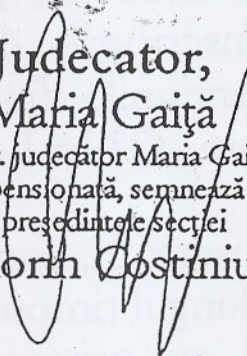 Judecator,
Maria Gaiţă
judecător Maria Gai
pensionată, semnează
preşedintele secţiei
orin Costiniu